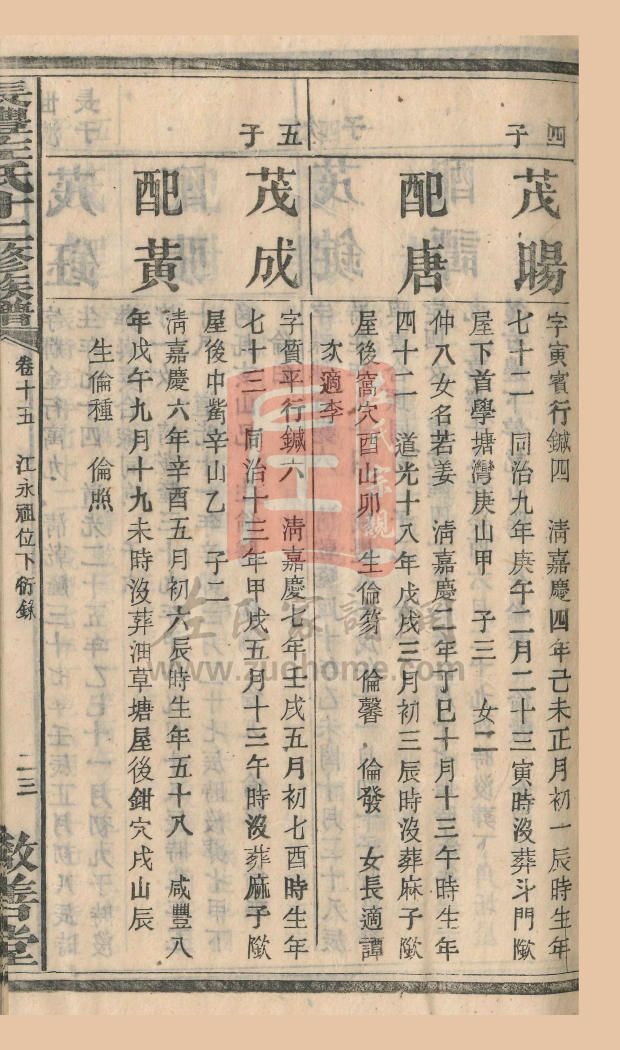 四子
茂暘
字寅賓行鍼四　清嘉慶四年己未正月初一辰時生年
七十二　同治九年庚午二月二十三寅時沒葬斗門陂
屋下首學塘灣庚山甲　子三　女二
配唐
仲八女名若姜　清嘉慶二年丁巳十月十三午時生年
四十二　道光十八年戊戌三月初三辰時沒葬麻子陂
屋後窩穴酉山卯　生倫篘　倫馨　倫發　女長適譚
次適李
五子
茂成
字質平行鍼六　清嘉慶七年壬戌五月初七酉時生年
七十三　同治十三年甲戌五月十三午時沒葬麻子陂
屋後中嘴辛山乙　子二
配黃
清嘉慶六年辛酉五月初六辰時生年五十八　咸豐八
年戊午九月十九未時沒葬油草塘屋後鉗穴戌山辰
生倫種　倫照
長豐左氏十二修族譜
卷十五　江永祖位下衍錄
二三
敦善堂
左氏宗親
左氏家譜網
www.zuohome.com